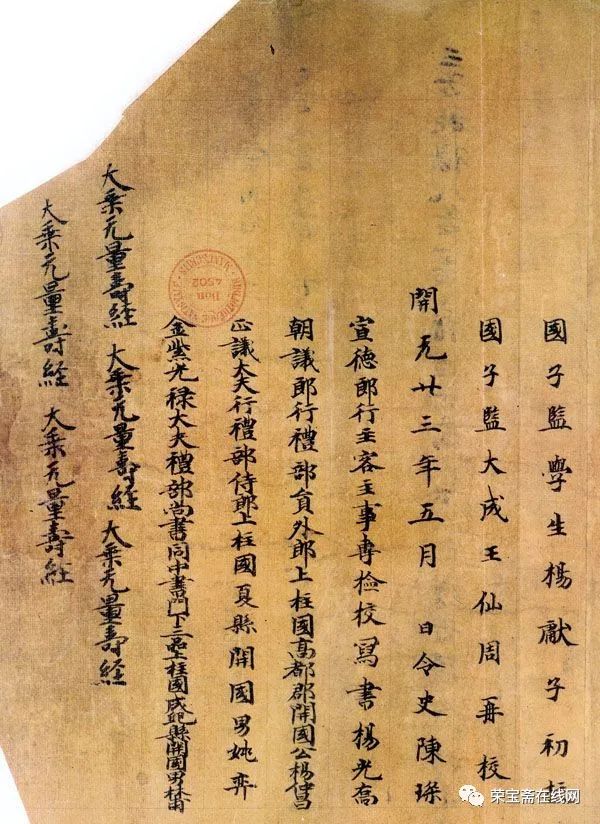 國子監學生楊獻子初校
國子監大成王仙周再校
開元廿三年五月 日令史陳琛
宣德郎行主客主事專檢校寫書楊光喬
朝議郎行禮部員外郎上柱國高都郡開國公楊仲昌
正議大夫行禮部侍郎上柱國夏縣開國男姚弈
金紫光祿大夫禮部尚書同中書門下三品上柱國成紀縣開國男林甫
大乘无量壽経 大乘无量壽経 大乘无量壽経
大乘无量壽経 大乘无量壽経
4502
荣宝斋在线网